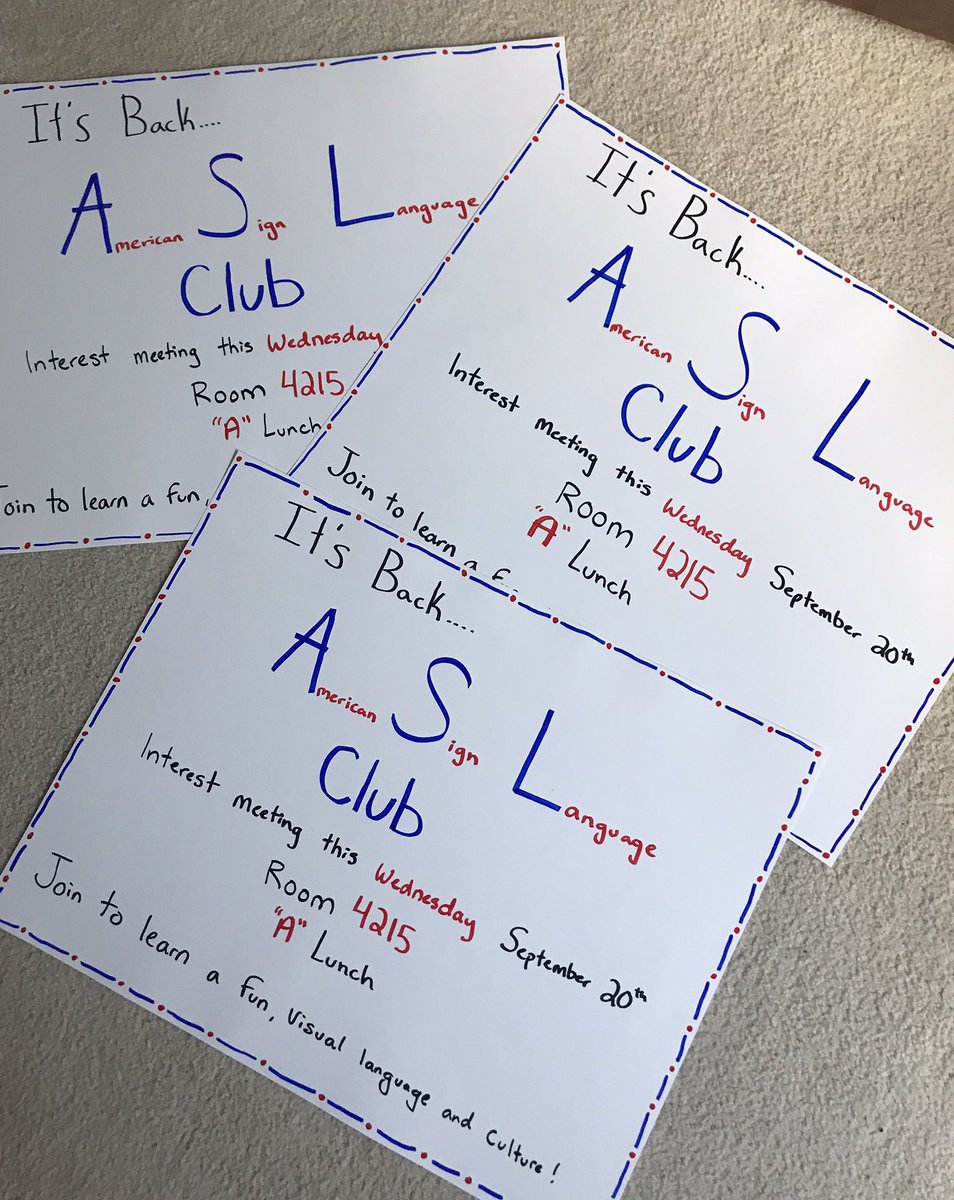 It's Back....
American Sign Language
Club
Interest meeting this Wednesday
Room 4215
"A" Lunch
Join to learn a fun,
It's Back....
American Sign Language
Club
Interest meeting this Wednesday September 20th
Room 4215
"A" Lunch
Join to learn a
It's Back....
American Sign Language
Club
Interest meeting this Wednesday September 20th
Room 4215
"A" Lunch
Join to learn a fun, visual language and culture!